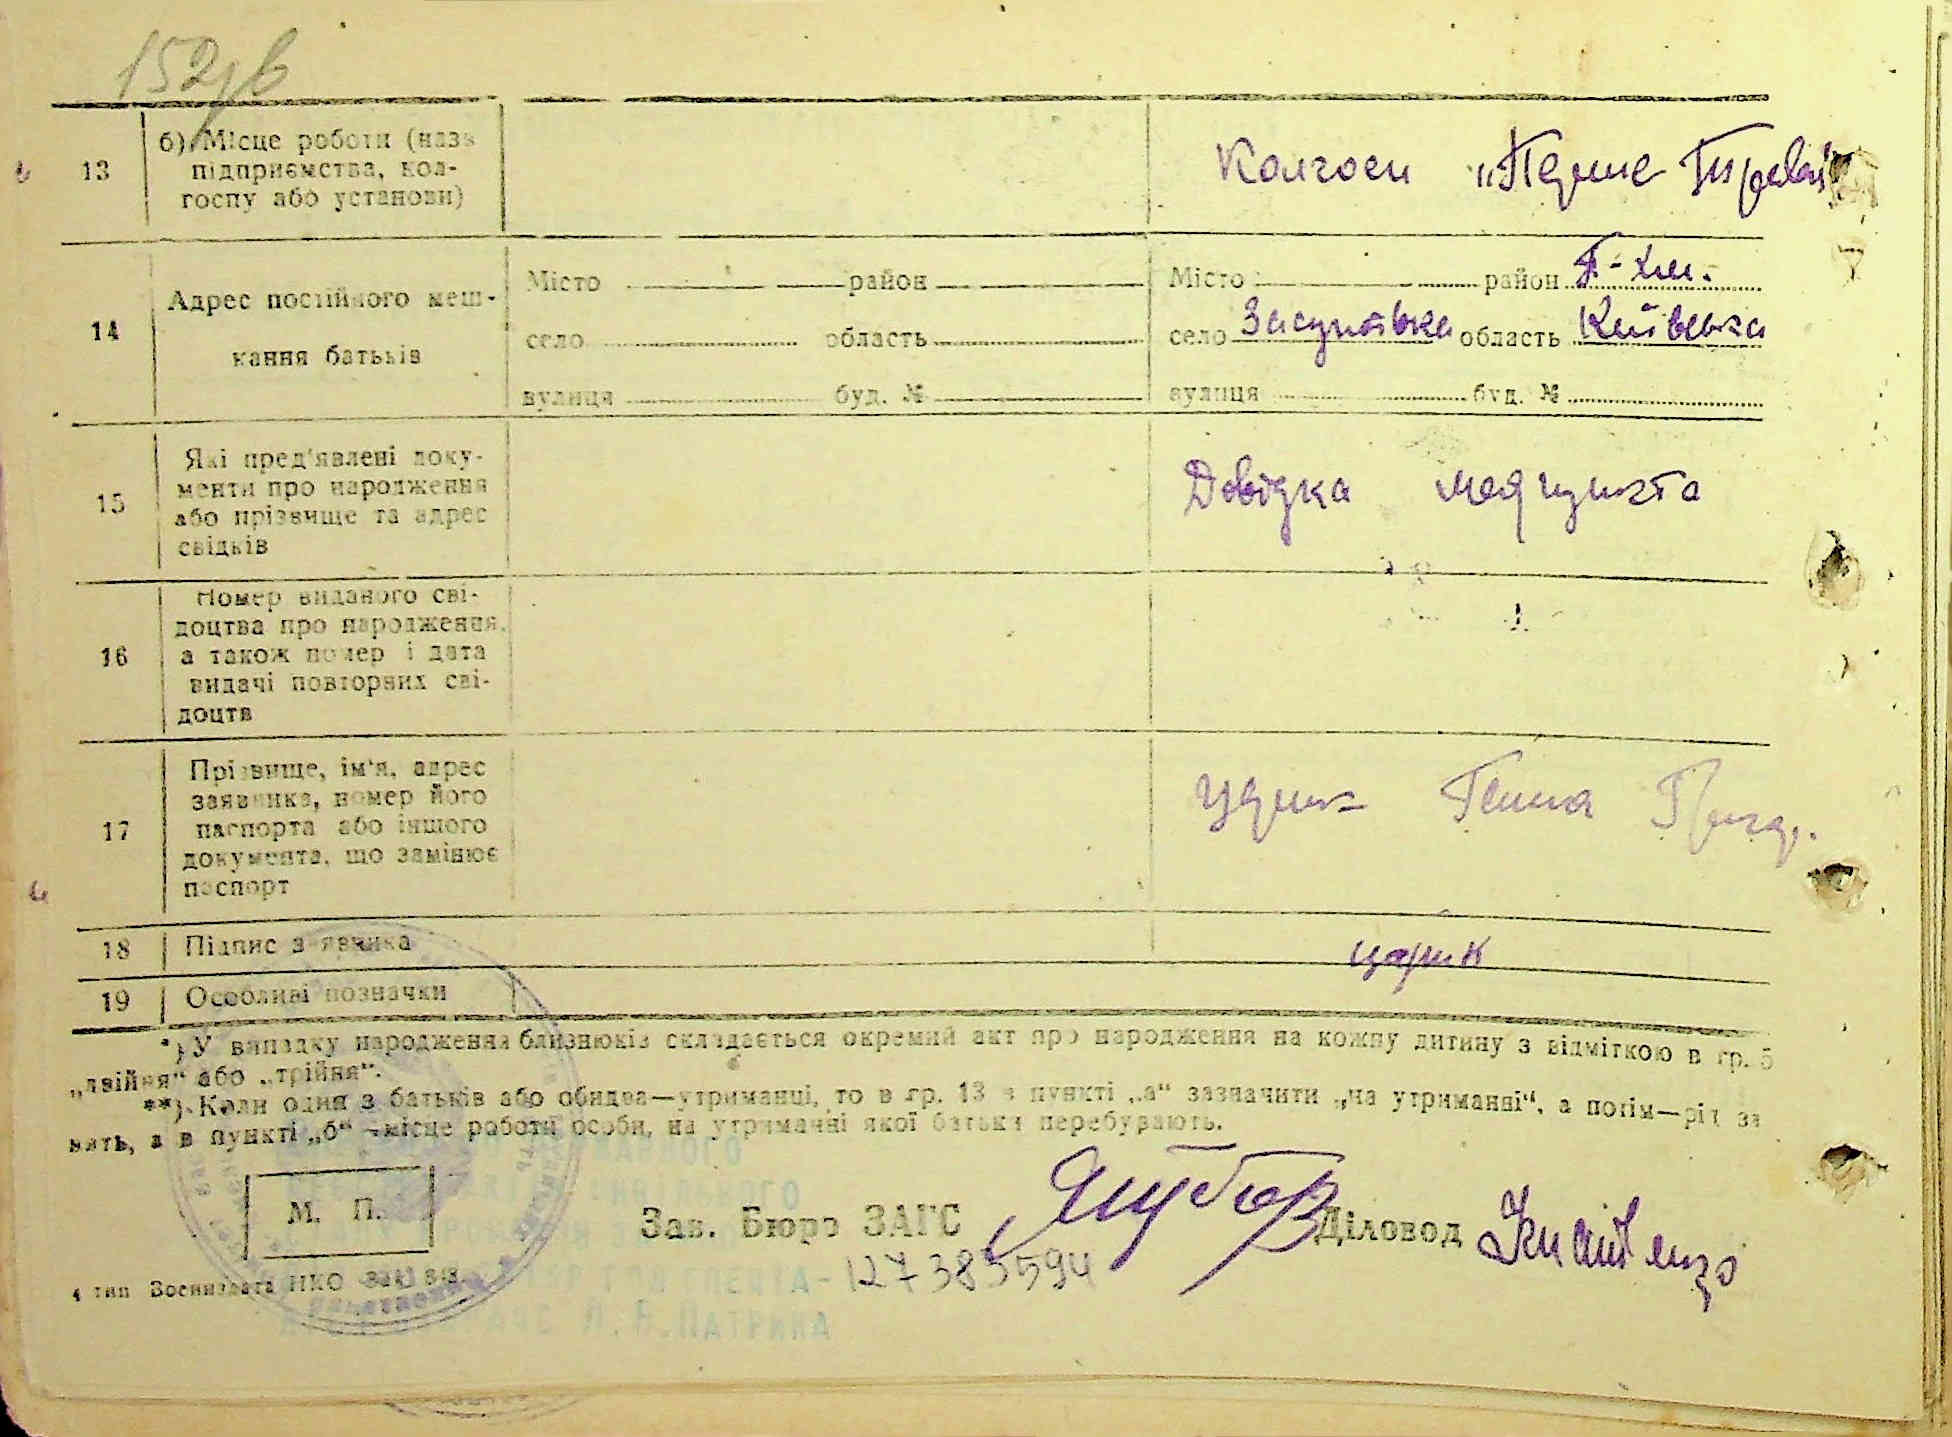 152
13
б) Місце роботи (назв
підприємства, кол-
госпу або установи)
Колгосп „Перше Травня"
14
Адрес постійного меш-
кання батьків
Місто район
село область
вулиця буд. №
Місто район П-Хм.
село Засупоївка область Київська
вулиця буд. №
15
Які пред'явлені доку-
менти про народження
або прізвище та адрес
свідків
Довідка медпункта
16
Номер виданого сві-
доцтва про народження,
а також номер і дата
видачі повторних сві-
доцтв
17
Прізвище, ім'я, адрес
заявника, номер його
паспорта або іншого
документа, що замінює
паспорт
Ганна Григ.
18 Підпис заявника
19 Особливі позначки
*) У випадку народження близнюків складається окремий акт про народження на кожну дитину з відміткою в гр. 5
„двійня" або „трійня".
**) Коли один з батьків або обидва—утриманці, то в гр. 13 в пункті „а" зазначити „на утриманні", а потім—рід за
нять, а в пункті „б" —місце роботи особи, на утриманні якої батьки перебувають.
М. П.
Зав. Бюро ЗАГС Діловод
127385594
4 тип Воениздата НКО Зак.
П.В.ПАТРИКА